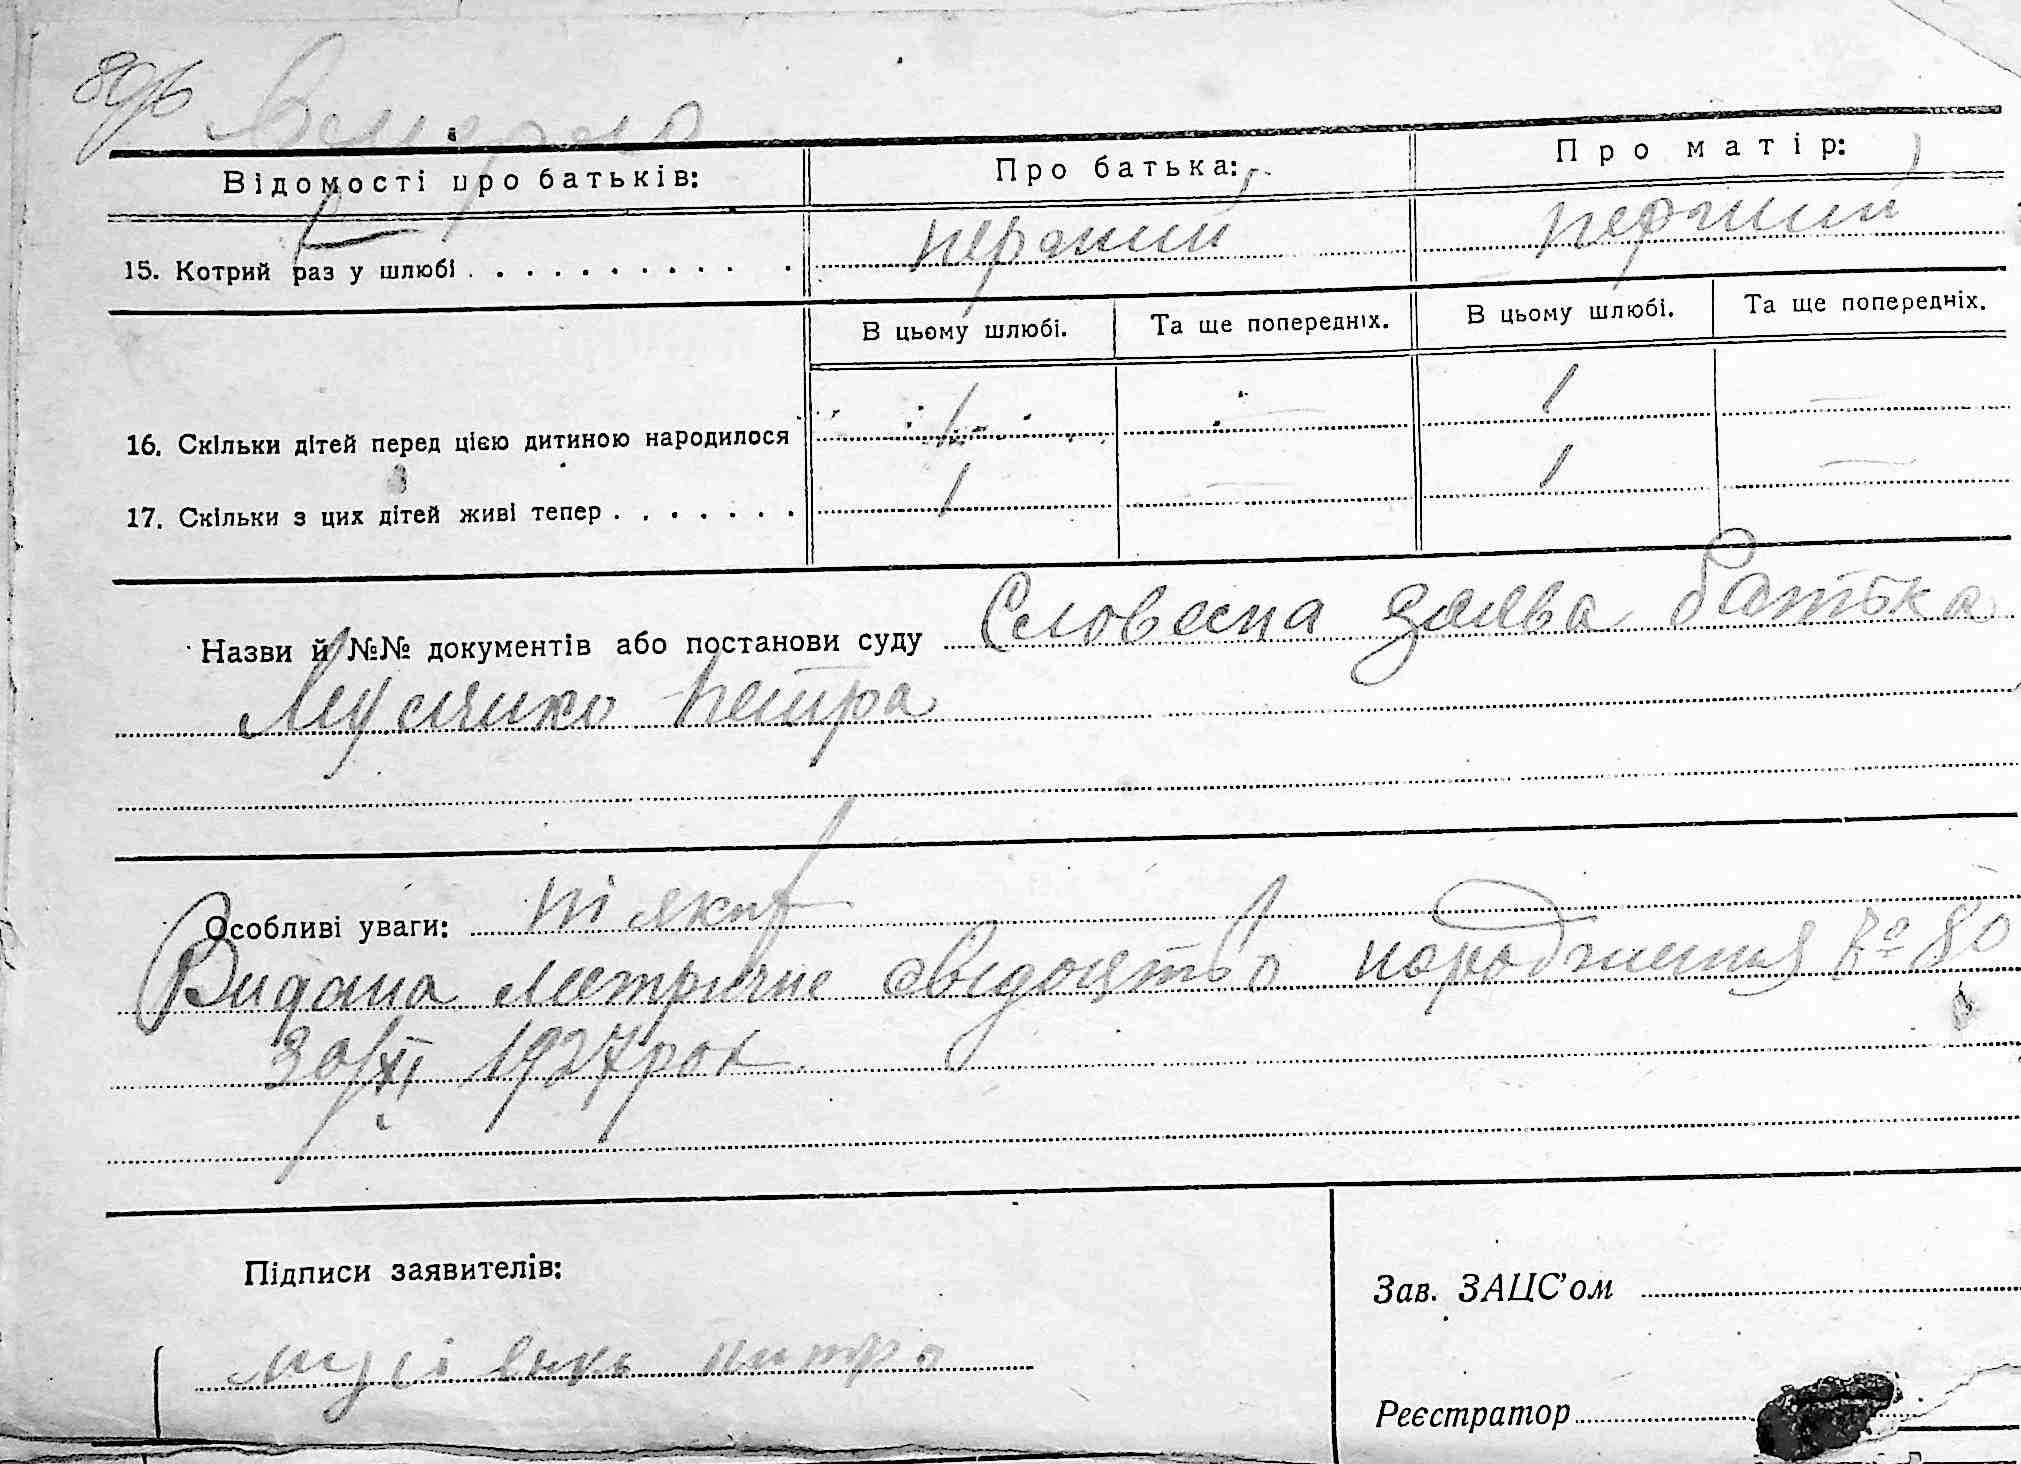 Відомості про батьків:
Про батька:
Про матір:
15. Котрий раз у шлюбі . . . . . . . . . . . .
перший
перший
В цьому шлюбі.
Та ще попередніх.
В цьому шлюбі.
Та ще попередніх.
16. Скільки дітей перед цією дитиною народилося
1
—
1
—
17. Скільки з цих дітей живі тепер . . . . . . .
1
—
1
—
Назви й №№ документів або постанови суду Словесна заява батька
Петра
Особливі уваги: ніяких
Видана метричне свідоцтво народження № 80
30/XI 1927 рок
Підписи заявителів:
Зав. ЗАЦС’ом
Реєстратор